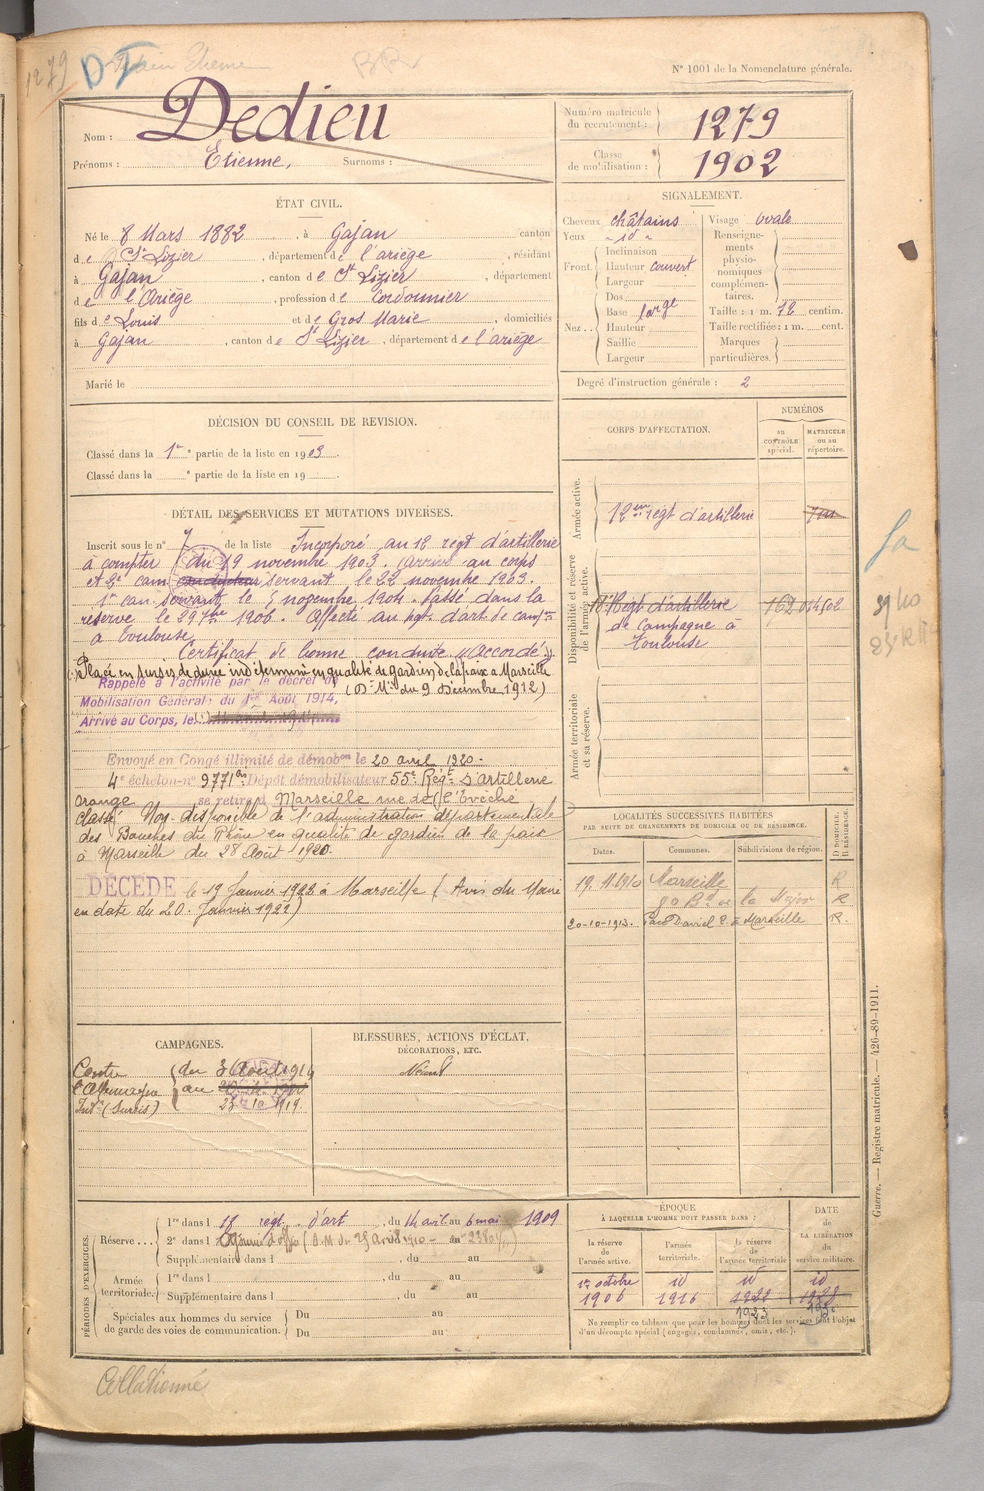 1279 DF
N° 1001 de la Nomenclature générale.
Nom : Dedieu
Prénoms : Etienne, Surnoms :
Numéro matricule du recrutement : 1279
Classe de mobilisation : 1902
ÉTAT CIVIL.
Né le 8 Mars 1882, à Gajan canton
de St Lizier, département de l'ariège, résidant
à Gajan, canton de St Lizier, département
de l'Ariège, profession de Cordonnier
fils de Louis et de Gros Marie, domiciliés
à Gajan, canton de St Lizier, département de l'ariège
Marié le
SIGNALEMENT.
Cheveux châtains
Yeux - id -
Front. Inclinaison
Hauteur couvert
Largeur
Nez... Dos
Base large
Hauteur
Saillie
Largeur
Visage ovale
Renseignements physionomiques complémentaires.
Taille : 1 m. 72 centim.
Taille rectifiée : 1 m. cent.
Marques particulières.
Degré d'instruction générale : 2
DÉCISION DU CONSEIL DE REVISION.
Classé dans la 1re partie de la liste en 1903.
Classé dans la e partie de la liste en 19
DÉTAIL DES SERVICES ET MUTATIONS DIVERSES.
Inscrit sous le n° 7 de la liste Incorporé au 18 regt d'artillerie
à compter du 19 novembre 1903. Arrivé au corps
et 2e can conducteur servant le 22 novembre 1903.
1er can. servant le 5 novembre 1904. Passé dans la
réserve le 29 7bre 1906. Affecté au rgt. d'art de camp
à Toulouse
Certificat de bonne conduite "Accordé"
Placé en sursis de durée indéterminée en qualité de gardien de la paix à Marseille
(Don Mlle du 9 Décembre 1912)
Rappelé à l'activité par le décret de
Mobilisation Général du 1er Août 1914,
Arrivé au Corps, le
Envoyé en Congé illimité de démobon le 20 avril 1920.
4e échelon n° 9771 Dépôt démobilisateur 55e Régt d'artillerie
Orange se retire à Marseille rue de l'Evêché
Classé Non disponible de l'administration départementale
des Bouches du Rhône en qualité de gardien de la paix
à Marseille du 28 Août 1920.
DÉCÉDÉ le 19 Janvier 1922 à Marseille (Avis du Maire
en date du 20 Janvier 1922)
CORPS D'AFFECTATION.
NUMÉROS
au CONTRÔLE spécial.
MATRICULE ou au répertoire.
Armée active.
18e regt d'artillerie
Disponibilité et réserve de l'armée active.
18e Régt d'artillerie
de campagne à
Toulouse
Armée territoriale et sa réserve.
LOCALITÉS SUCCESSIVES HABITÉES
PAR SUITE DE CHANGEMENTS DE DOMICILE OU DE RÉSIDENCE.
Dates. Communes. Subdivisions de région. D DOMICILE. R RÉSIDENCE.
Marseille R
80 Bd de la Major R
20-10-1913. à Marseille R.
CAMPAGNES.
Contre du 3 Août 1914
l'Allemagne au
Intr (Sursis) 1919.
BLESSURES, ACTIONS D'ÉCLAT,
DÉCORATIONS, ETC.
Néant
PÉRIODES D'EXERCICES.
Réserve... 1re dans l 18 regt d'art, du 14 avril au 6 mai 1909
2e dans l
Supplémentaire dans l, du au
Armée territoriale. 1re dans l, du au
Supplémentaire dans l, du au
Spéciales aux hommes du service de garde des voies de communication. Du au
Du au
ÉPOQUE
À LAQUELLE L'HOMME DOIT PASSER DANS :
la réserve de l'armée active. l'armée territoriale. la réserve de l'armée territoriale
DATE de LA LIBÉRATION du service militaire.
1er octobre id id id
1906 1916 1922 1928
1923
Ne remplir ce tableau que pour les hommes dont les services font l'objet
d'un décompte spécial (engagés, condamnés, omis, etc.).
Guerre. — Registre matricule. — 426-89-1911.
Collationné